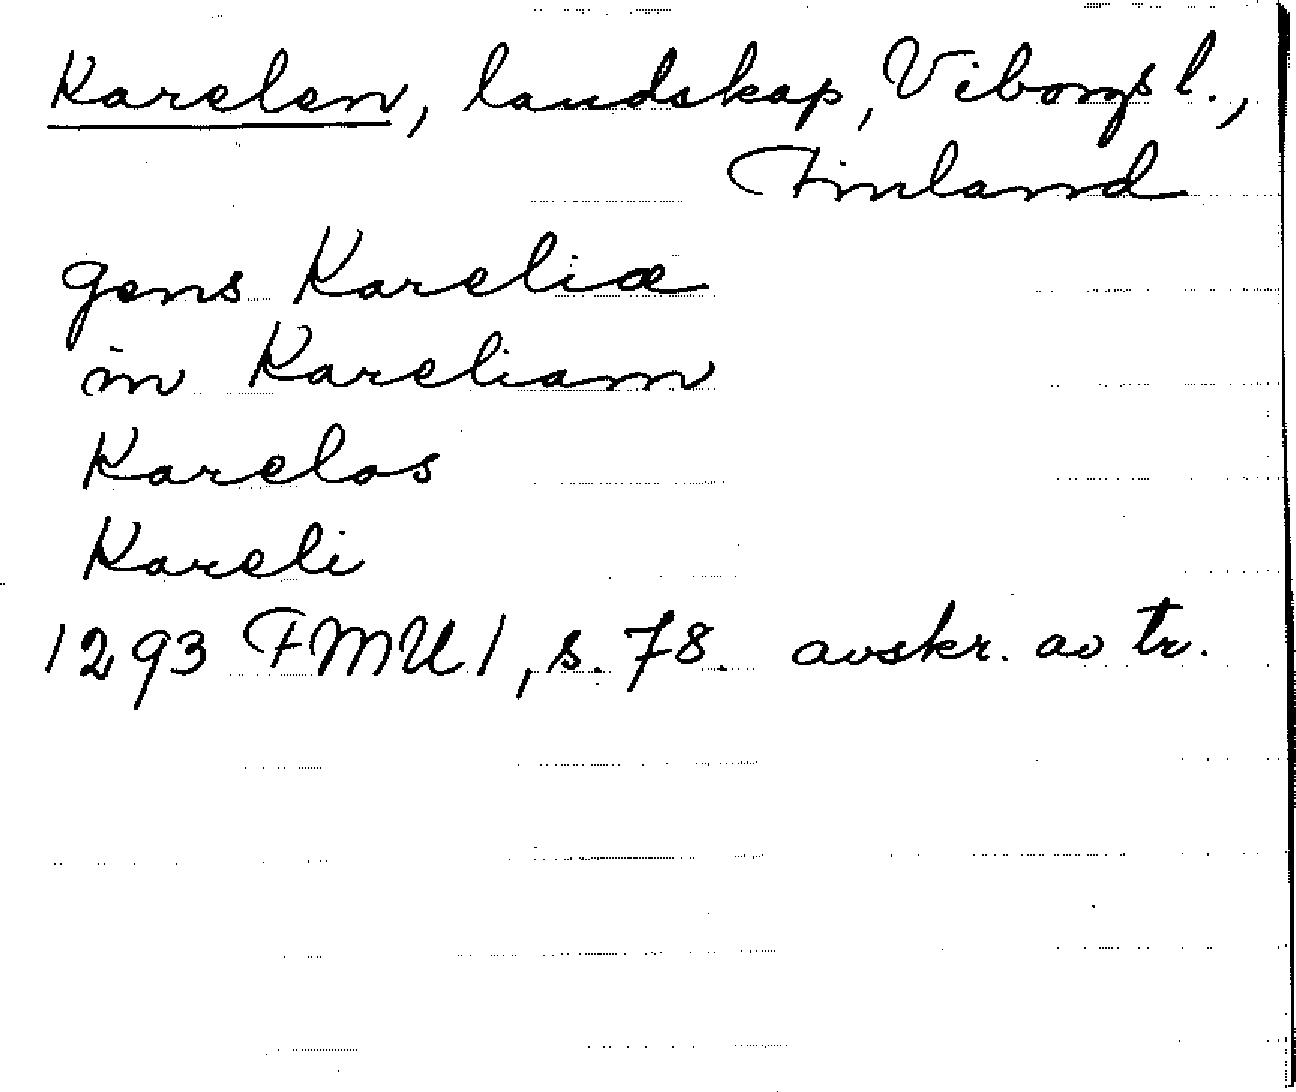 Karelen, landskap, Viborgs l.,
Finland
gens Kareliæ
in Kareliam
Karelos
Kareli
1293 FMU 1, s. 78. avskr. av tr.